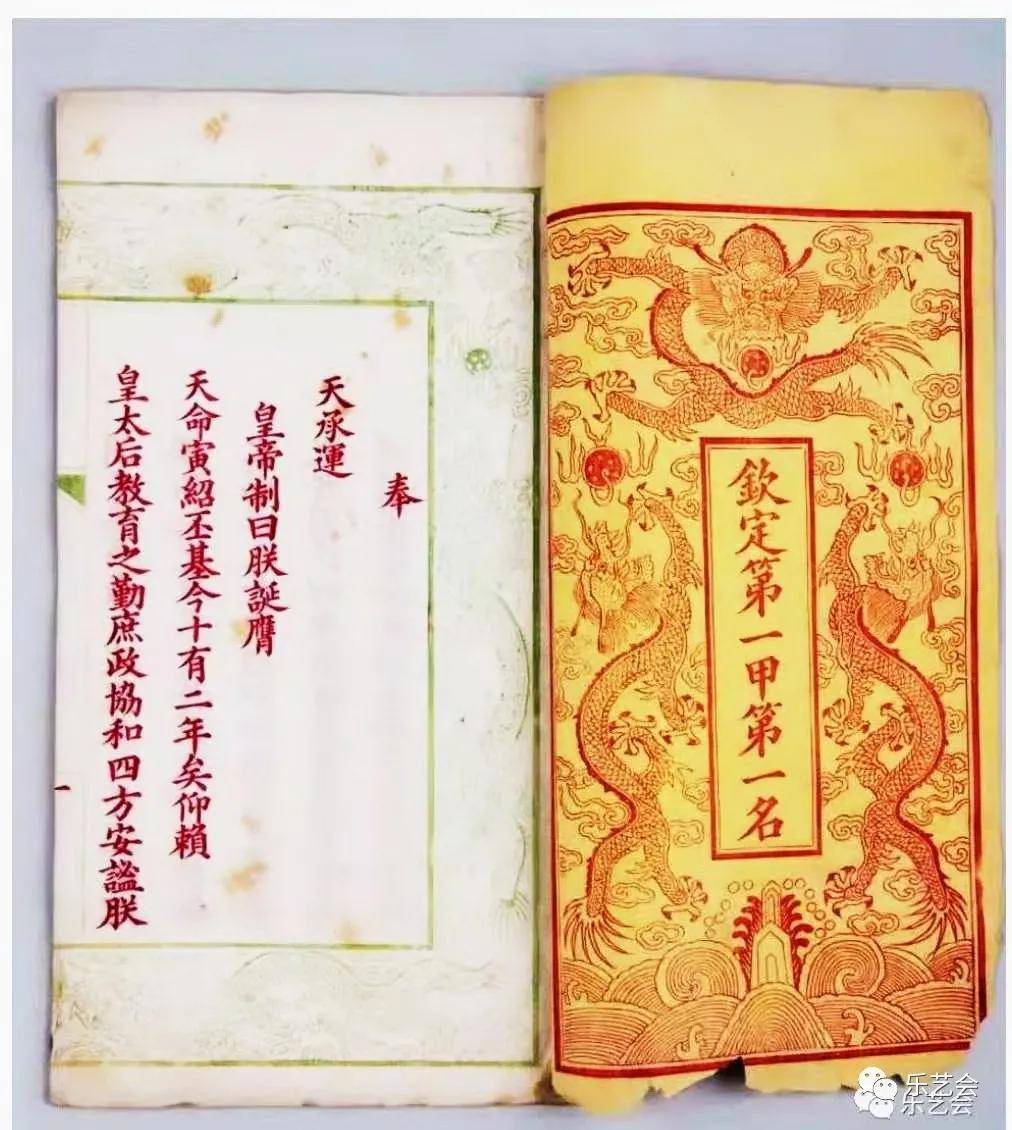 欽定第一甲第一名
奉
天承運
皇帝制曰朕誕膺
天命寅紹丕基今十有二年矣仰賴
皇太后教育之勤庶政協和四方安謐朕
乐艺会
乐艺会